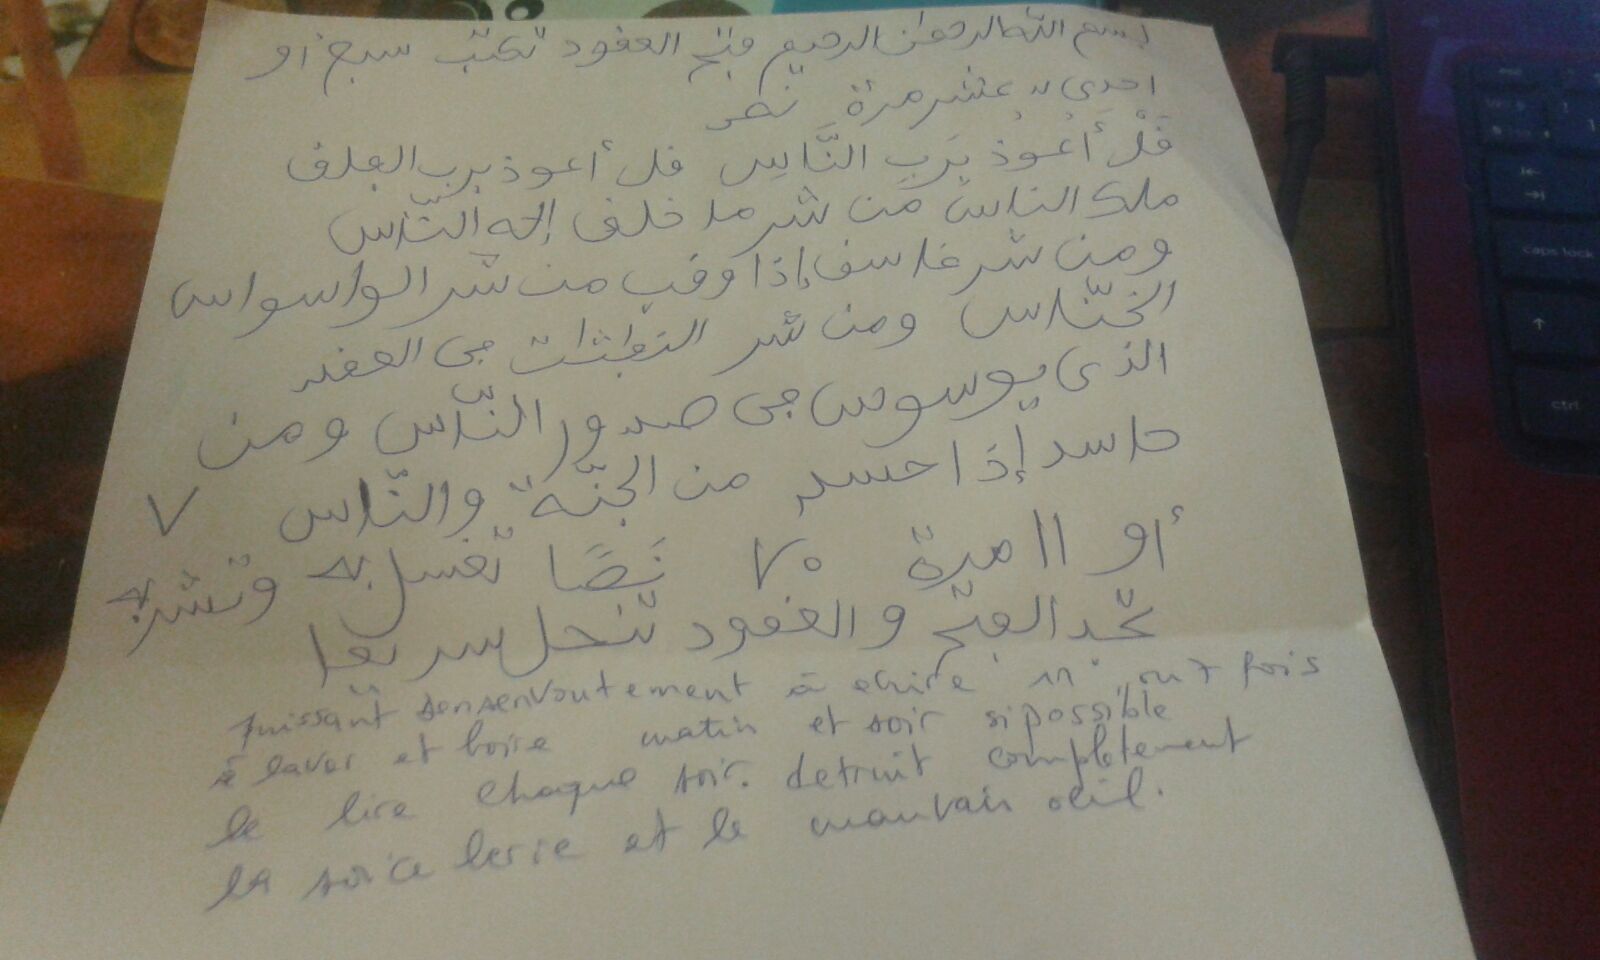 بسم الله الرحمن الرحيم فتح العقود تكتب سبع أو
احدى عشر مرة
قل أعوذ برب الناس قل أعوذ برب الفلق
ملك الناس من شر ما خلق إله النّاس
ومن شر غاسق إذا وقب من شر الواسواس
الخنّاس ومن شر النفثت في العقد
الذى يوسوس في صدور النّاس ومن
حاسد إذا حسد من الجنّة والنّاس ٧
أو 11 مرة ٧٠ نَصًا تغسل به وتشربه
تجد الفتح والعقود تنحل سريعا
puissant desenvoutement à ecrire 11 ou 7 fois
à laver et boire matin et soir si possible
le lire chaque soir. detruit completement
la sorcelerie et le mauvais oeil.